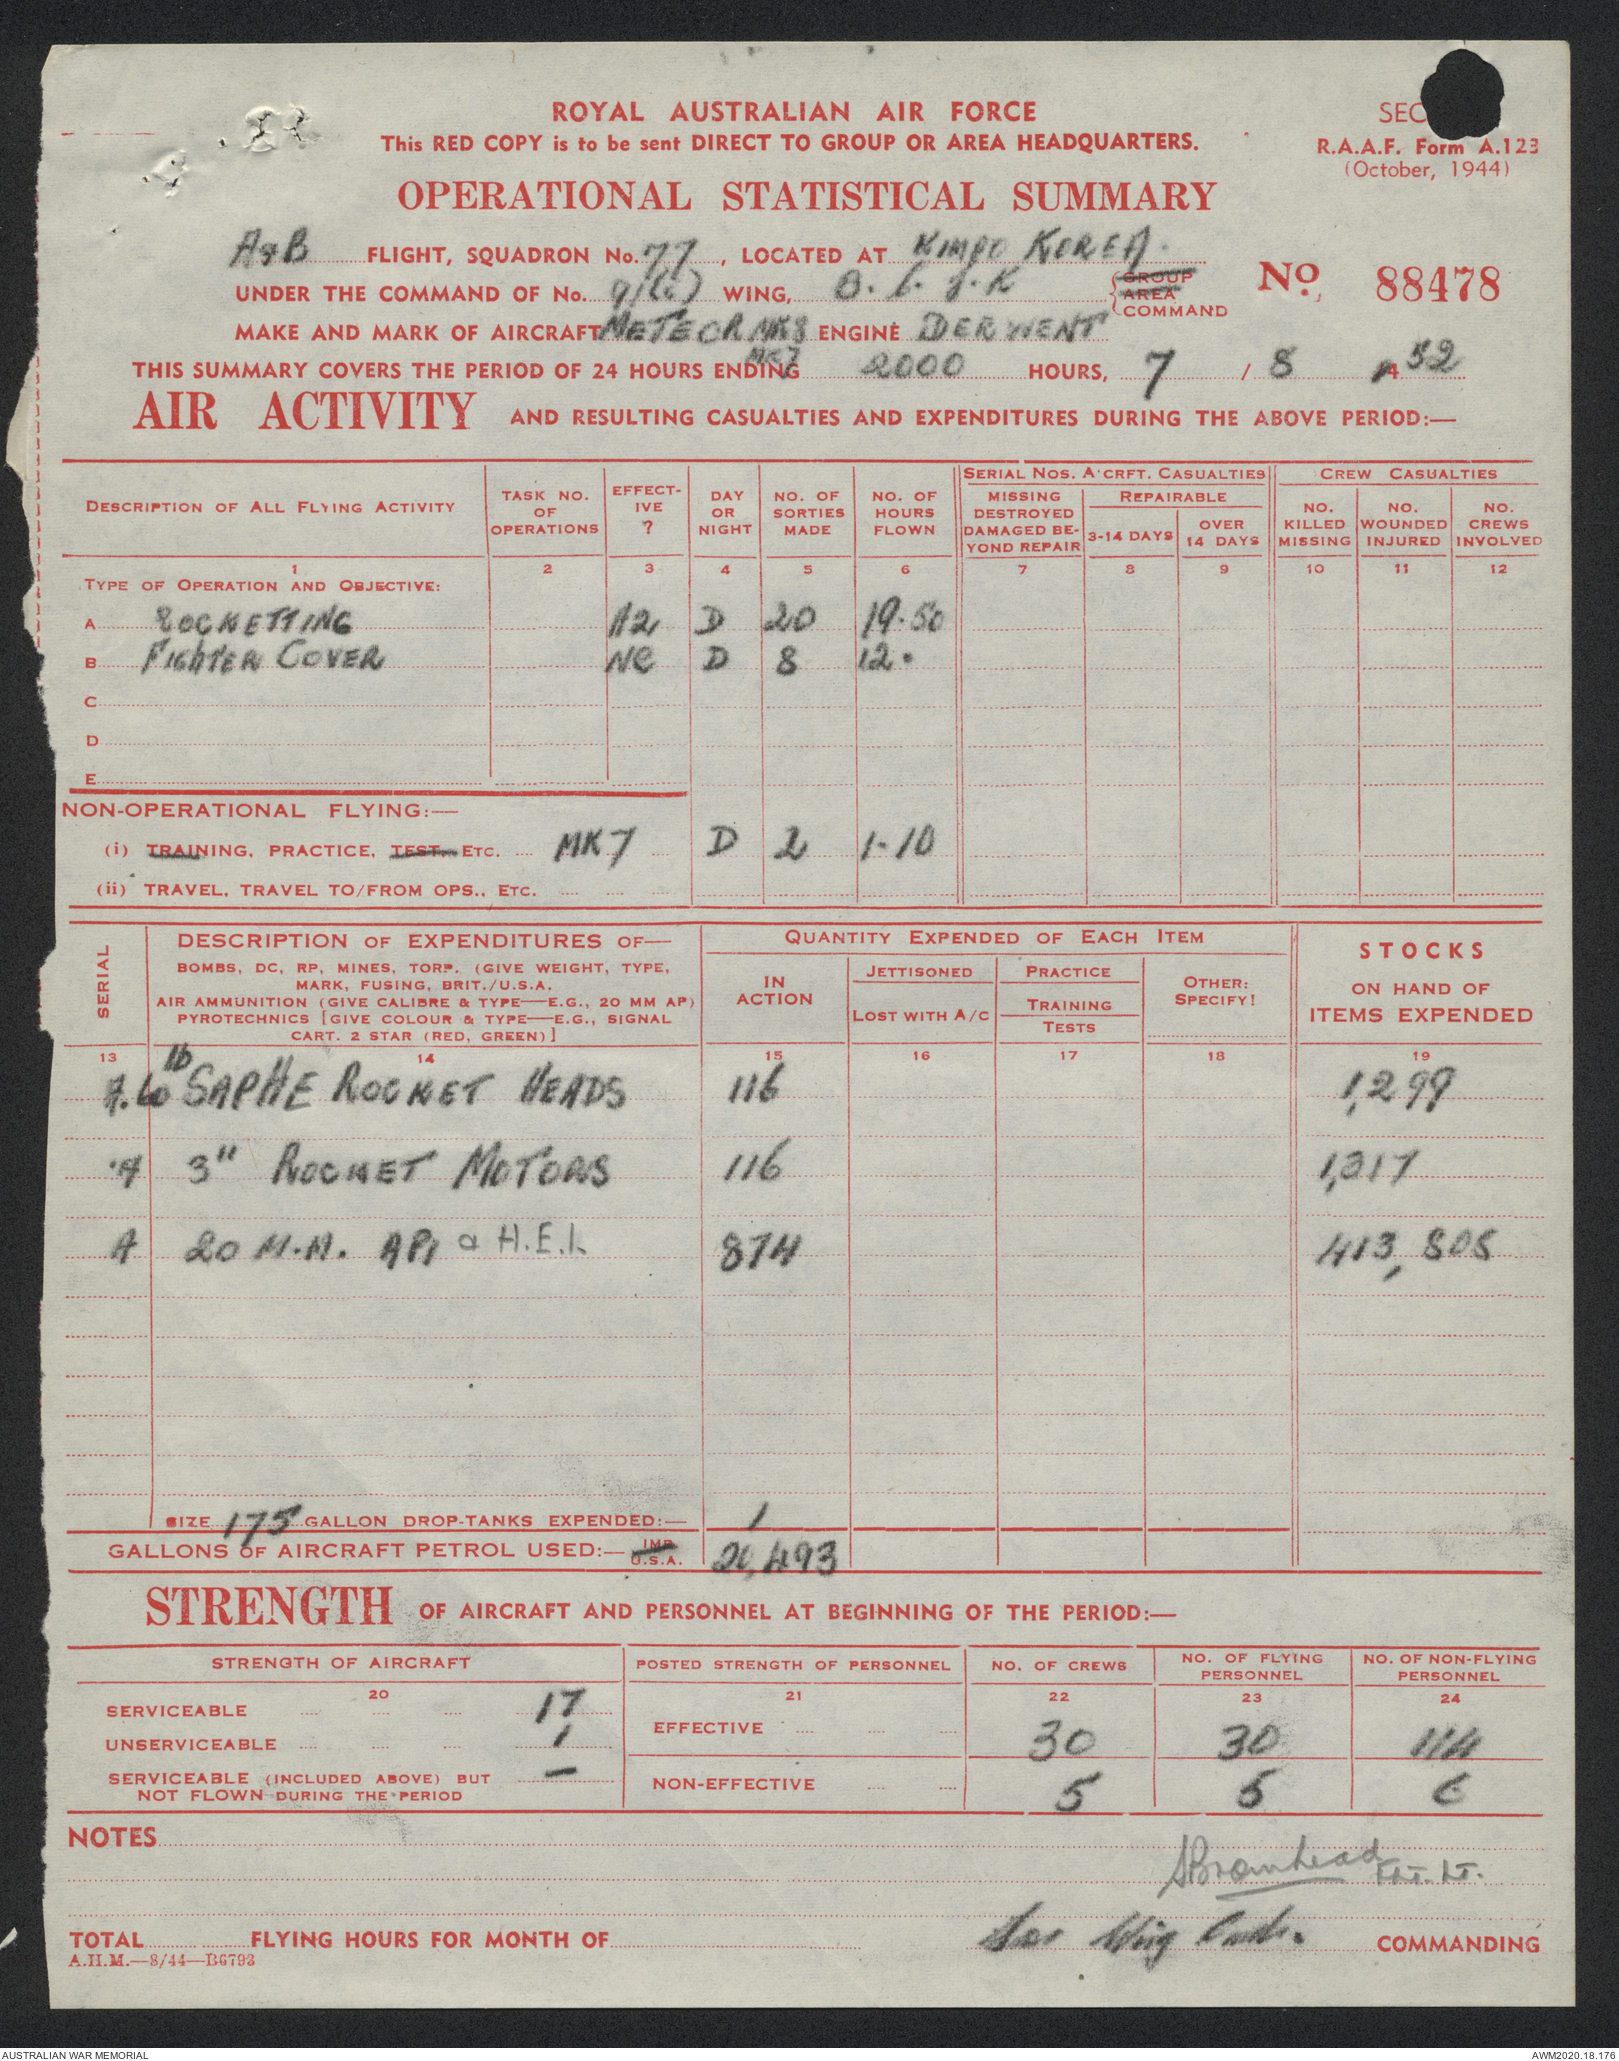 ROYAL AUSTRALIAN AIR FORCE
This RED COPY is to be sent DIRECT TO GROUP OR AREA HEADQUARTERS.
SEC
R.A.A.F. Form A.123
(October, 1944)
OPERATIONAL STATISTICAL SUMMARY
A & B FLIGHT, SQUADRON No. 77, LOCATED AT KIMPO KOREA.
UNDER THE COMMAND OF No. 91(C) WING, B. C. J. K GROUP AREA COMMAND
No. 88478
MAKE AND MARK OF AIRCRAFT METEOR MK8 ENGINE DERWENT
MK7
THIS SUMMARY COVERS THE PERIOD OF 24 HOURS ENDING 2000 HOURS, 7 / 8 52
AIR ACTIVITY AND RESULTING CASUALTIES AND EXPENDITURES DURING THE ABOVE PERIOD:—
DESCRIPTION OF ALL FLYING ACTIVITY
TASK NO. OF OPERATIONS
EFFECTIVE ?
DAY OR NIGHT
NO. OF SORTIES MADE
NO. OF HOURS FLOWN
SERIAL NOS. A'CRFT. CASUALTIES
MISSING DESTROYED DAMAGED BEYOND REPAIR
REPAIRABLE
3-14 DAYS
OVER 14 DAYS
CREW CASUALTIES
NO. KILLED MISSING
NO. WOUNDED INJURED
NO. CREWS INVOLVED
1 2 3 4 5 6 7 8 9 10 11 12
TYPE OF OPERATION AND OBJECTIVE:
A ROCKETTING A2 D 20 19.50
B FIGHTER COVER NC D 8 12.
C
D
E
NON-OPERATIONAL FLYING:—
(i) TRAINING, PRACTICE, TEST, ETC. MK7 D 2 1.10
(ii) TRAVEL, TRAVEL TO/FROM OPS., ETC.
SERIAL
DESCRIPTION OF EXPENDITURES OF—
BOMBS, DC, RP, MINES, TORP. (GIVE WEIGHT, TYPE,
MARK, FUSING, BRIT./U.S.A.
AIR AMMUNITION (GIVE CALIBRE & TYPE—E.G., 20 MM AP)
PYROTECHNICS [GIVE COLOUR & TYPE—E.G., SIGNAL
CART. 2 STAR (RED, GREEN)]
QUANTITY EXPENDED OF EACH ITEM
IN ACTION
JETTISONED
LOST WITH A/C
PRACTICE
TRAINING
TESTS
OTHER: SPECIFY!
STOCKS
ON HAND OF
ITEMS EXPENDED
13 14 15 16 17 18 19
A. 60 lb SAPHE ROCKET HEADS 116 1,299
A 3" ROCKET MOTORS 116 1,317
A 20 M.M. API & H.E.I. 874 413,805
SIZE 175 GALLON DROP-TANKS EXPENDED:— 1
GALLONS OF AIRCRAFT PETROL USED:— IMP. U.S.A. 20,493
STRENGTH OF AIRCRAFT AND PERSONNEL AT BEGINNING OF THE PERIOD:—
STRENGTH OF AIRCRAFT
POSTED STRENGTH OF PERSONNEL
NO. OF CREWS
NO. OF FLYING PERSONNEL
NO. OF NON-FLYING PERSONNEL
20 21 22 23 24
SERVICEABLE 17
EFFECTIVE 30 30 114
UNSERVICEABLE 1
SERVICEABLE (INCLUDED ABOVE) BUT
NOT FLOWN DURING THE PERIOD —
NON-EFFECTIVE 5 5 6
NOTES
Bromhead FLT. LT.
TOTAL FLYING HOURS FOR MONTH OF
for Wing Cmdr. COMMANDING
A.H.M.—8/44—B6793
AUSTRALIAN WAR MEMORIAL
AWM2020.18.176